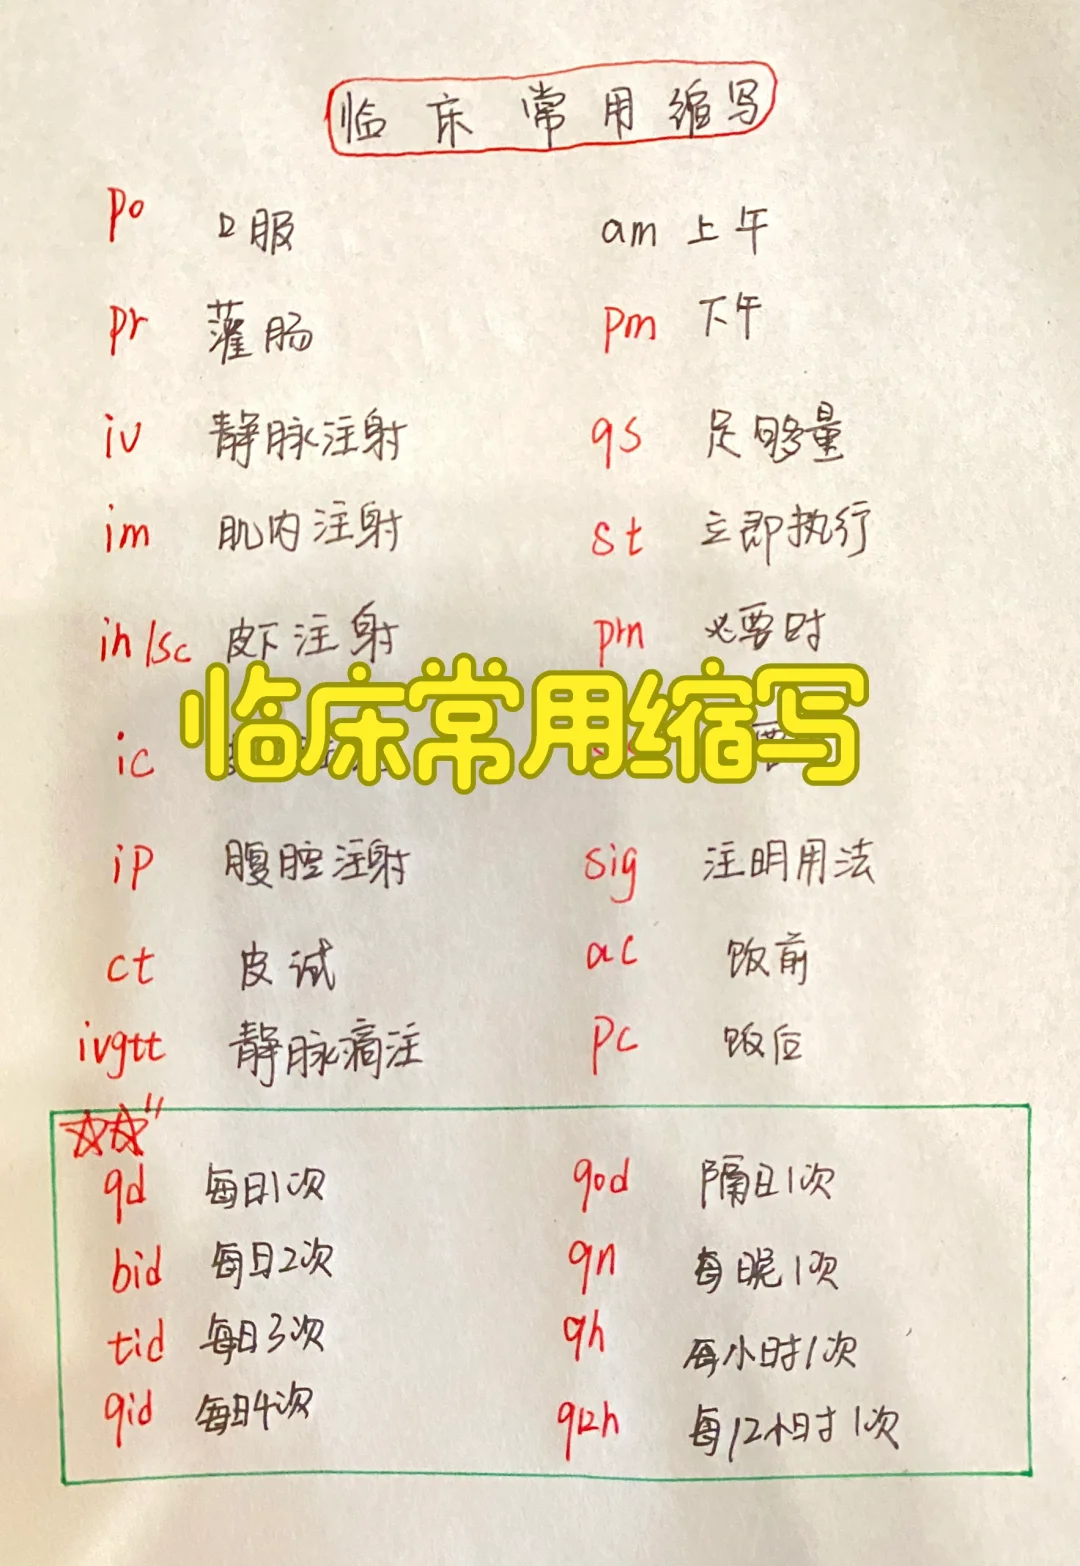 临床常用缩写
po 口服 am 上午
pr 灌肠 pm 下午
iv 静脉注射 qs 足够量
im 肌内注射 st 立即执行
ih/sc 皮下注射 prn 必要时
临床常用缩写
ic
ip 腹腔注射 sig 注明用法
ct 皮试 ac 饭前
ivgtt 静脉滴注 pc 饭后
qd 每日1次 qod 隔日1次
bid 每日2次 qn 每晚1次
tid 每日3次 qh 每小时1次
qid 每日4次 q12h 每12小时1次